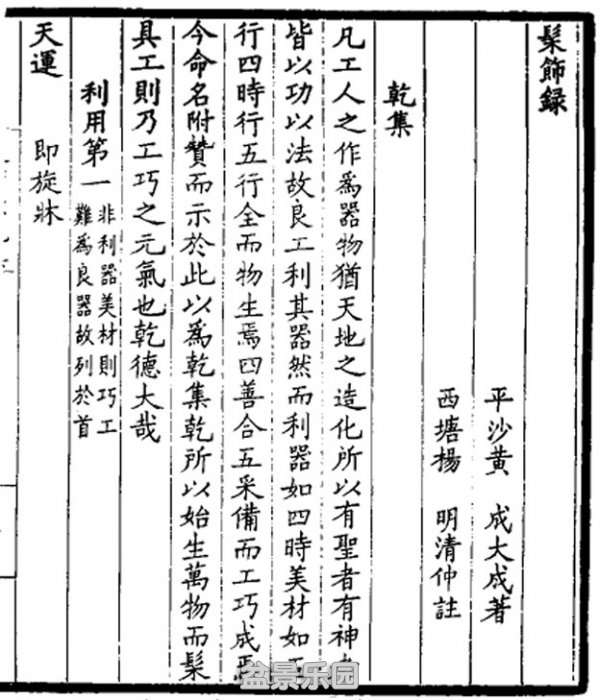 髹飾録
平沙黃 成大成著
西塘楊 明清仲註
乾集
凡工人之作爲器物猶天地之造化所以有聖者有神
皆以功以法故良工利其器然而利器如四時美材如五
行四時行五行全而物生焉四善合五采備而工巧成焉
今命名附贊而示於此以爲乾集乾所以始生萬物而髹
具工則乃工巧之元氣也乾德大哉
利用第一 非利器美材則巧工
難爲良器故列於首
天運 即旋牀
盆景乐园